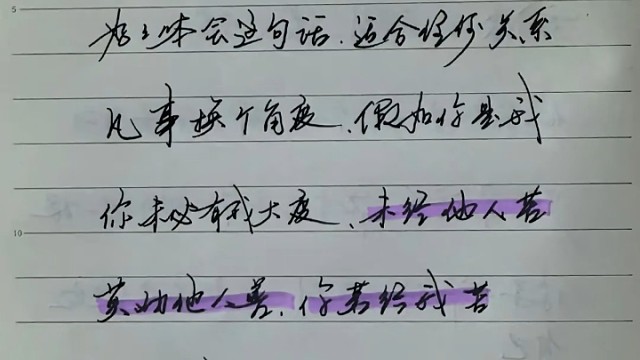 5
好好体会这句话.适合任何关系
凡事换个角度、假如你是我
你未必有我大度、未经他人苦
10
莫劝他人善、你若经我苦